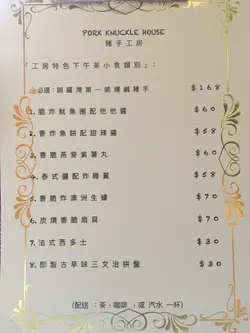 PORK KNUCKLE HOUSE
豬手工房
「工房特色下午茶小食類別」:
必選:銅鑼灣第一脆爆鹹豬手 $168
1.脆炸魷魚圈配他他醬 $60
2.香炸魚餅配甜辣醬 $58
3.香脆燕麥紫薯丸 $60
4.泰式醬配炸雞翼 $58
5.脆炸軟殼澳洲生蠔 $70
6.炭燒香脆扇貝 $70
7.法式西多士 $30
8.即製古早味三文治拼盤 $30
(配送:茶,咖啡,或 汽水 一杯)